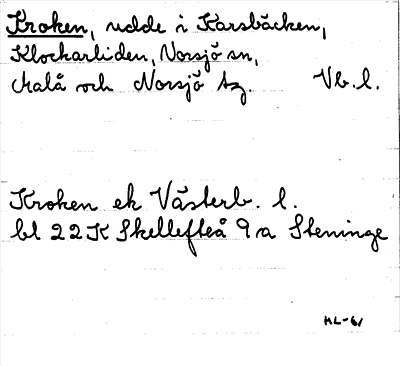 Kroken, udde i Karsbäcken,
Klockarliden, Norsjö sn,
Malå och Norsjö tg. Vb. l.
Kroken ek Västerb. l.
bl 22K Skellefteå 9a Steninge
KL-61